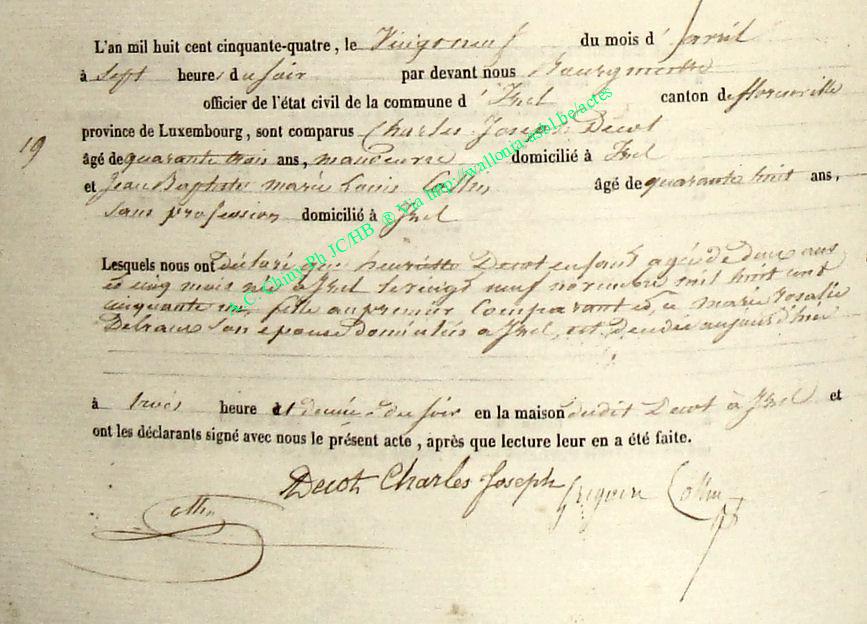 L'an mil huit cent cinquante-quatre, le Vingt neuf du mois d'avril
à Sept heures du soir par devant nous Bourgmestre
officier de l'état civil de la commune d'Izel canton de florenville
province de Luxembourg, sont comparus Charles Joseph Decot
19
âgé de quarante trois ans, manoeuvre domicilié à Izel
et Jean Baptiste marie Louis Collin âgé de quarante huit ans,
sans profession domicilié à Izel
A.C. Chiny Ph JC/HB ® Via http://wallonia-asbl.be/actes
Lesquels nous ont déclaré que henriette Decot enfant agée de deux ans
et cinq mois né à Izel le vingt neuf novembre mil huit cent
cinquante un, fille au premier Comparant et à marie rosalie
son épouse domiciliés à Izel, est décédée aujourd'hui
à trois heure et demie du soir en la maison dudit Decot à Izel et
ont les déclarants signé avec nous le présent acte, après que lecture leur en a été faite.
Decot Charles Joseph
Collin